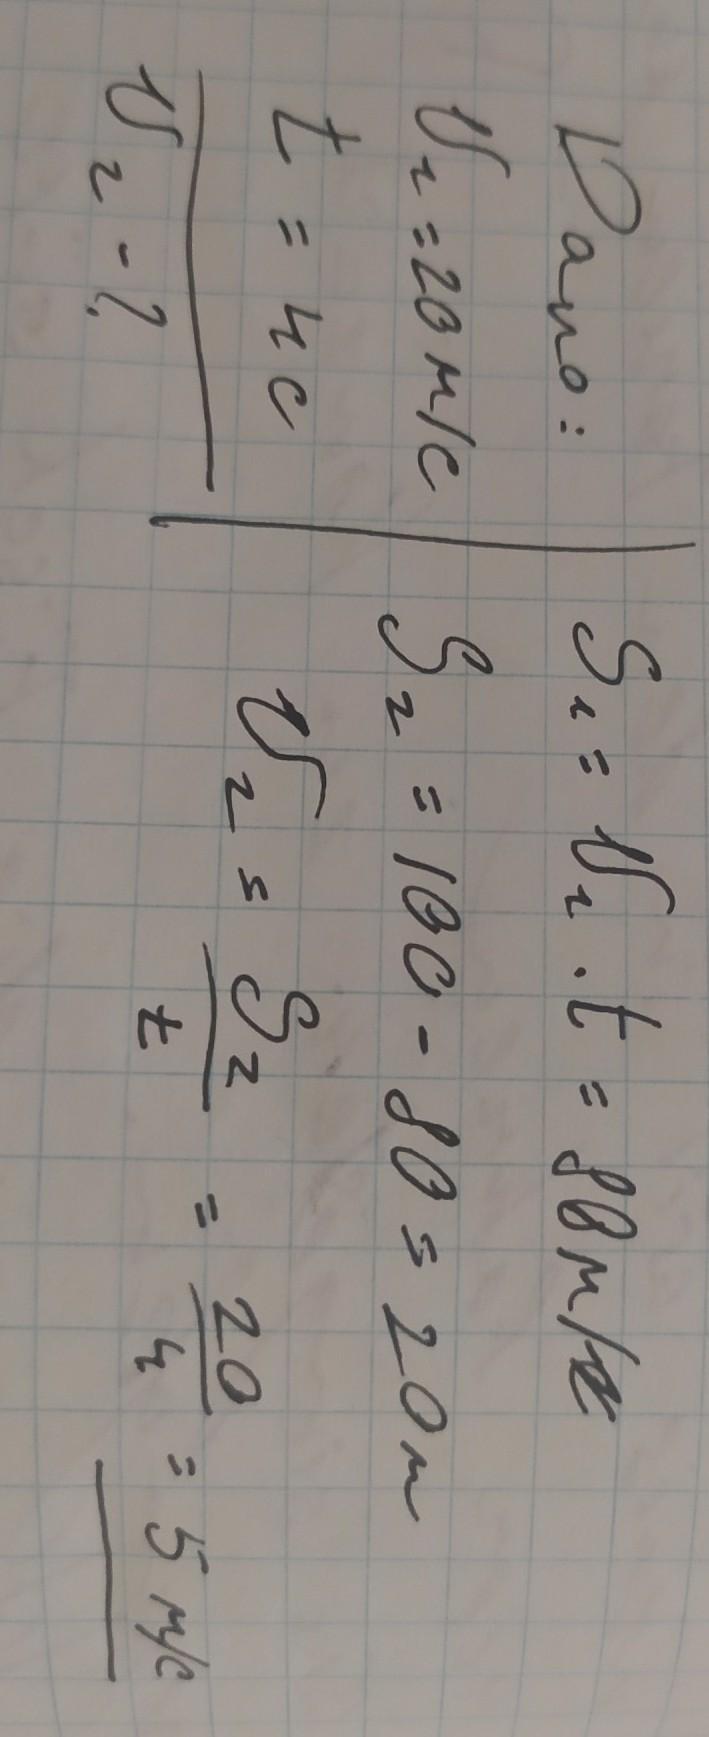 Дано:
υ₁ = 20 м/с
t = 4 с
υ₂ - ?
S₁ = υ₁ · t = 80 м/с
S₂ = 100 - 80 = 20 м
υ₂ = S₂/t = 20/4 = 5 м/с